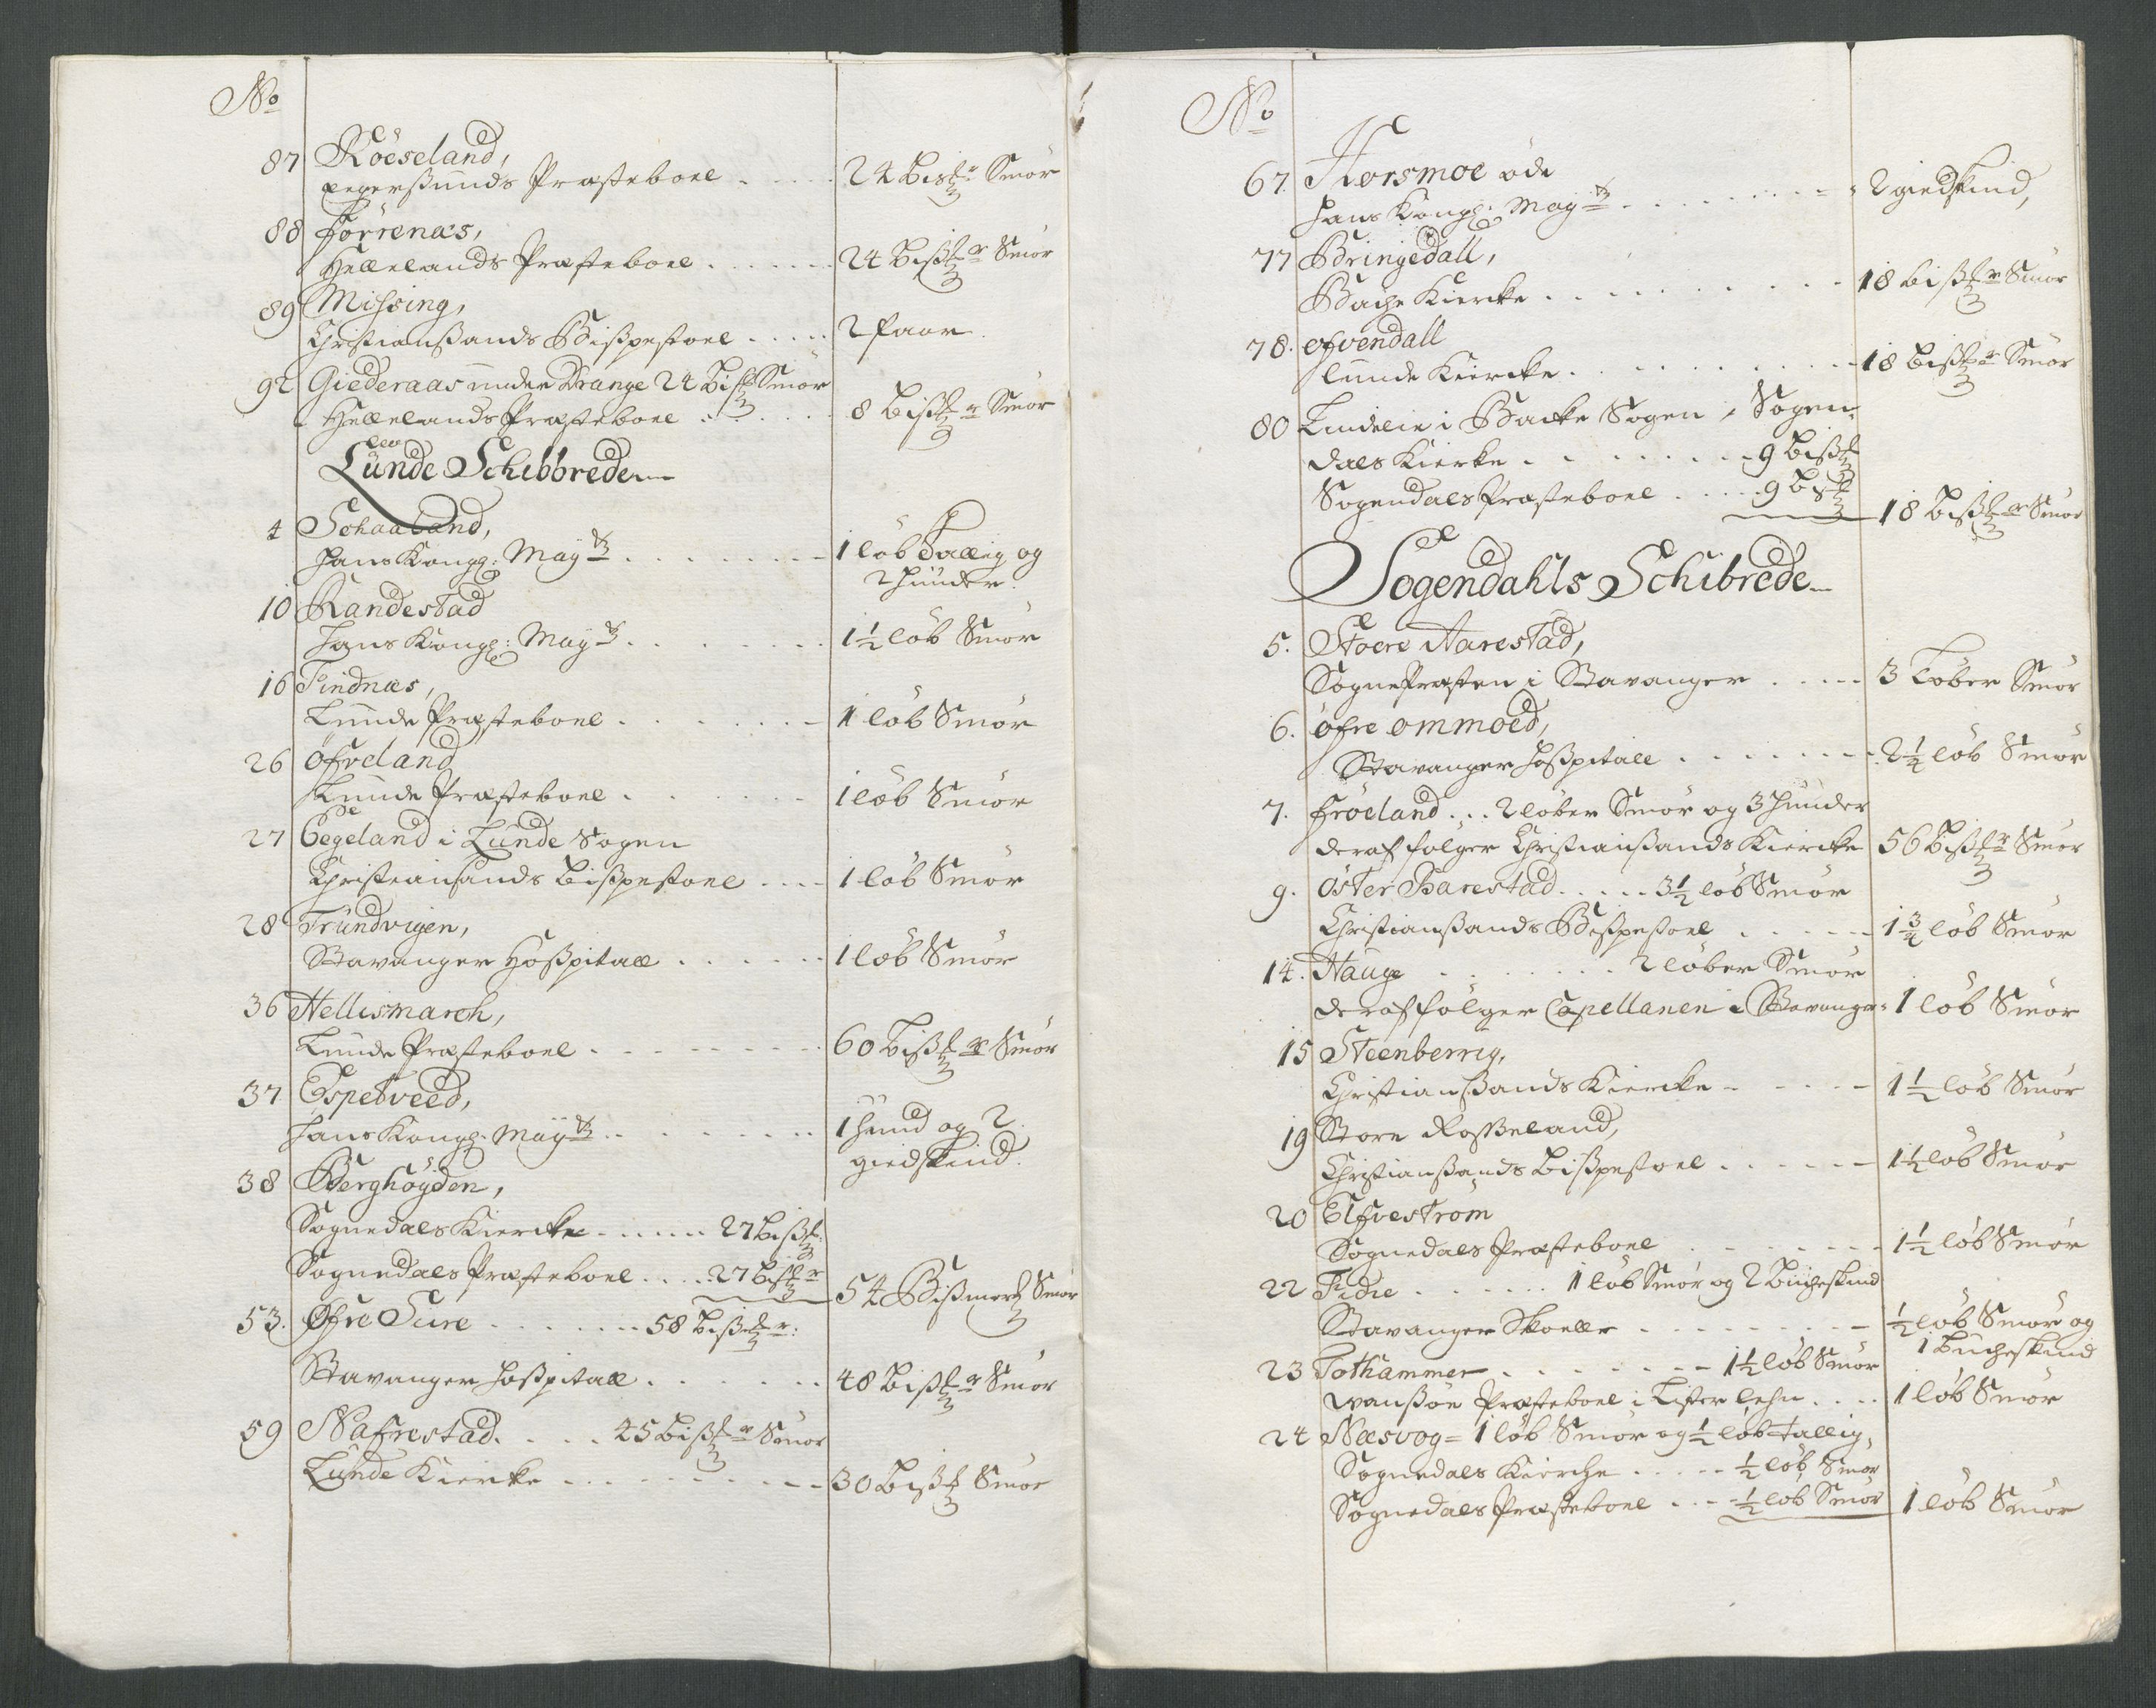 No
87 Röeseland,
Egerßunds Præsteboel . . . . 24 Biß℔r Smör
88 Förrenæs,
Hellelands Præsteboel . . . . . . 24 Biß℔r Smör
89 Missing,
Christianßands Bißpestoel . . . . . 2 faar
92 Giederaas under Drange 24 Biß℔ Smör
Hellelands Præsteboel . . . . . 8 Biß℔r Smör
Lunde Schibbrede
4 Schaaland,
Hans Kongl: Mayᵗᶻ . . . . . . . 1 löb Tallig og
2 hunder.
10 Randestad
Hans Kongl: Mayᵗᶻ . . . . . . 1½ löb Smör
16 Tindnæs,
Lunde Præsteboel . . . . . . . 1 löb Smör
26 öfreland
Lunde Præsteboel . . . . . . 1 löb Smör
27 Eegeland i Lunde Sogen
Christiansands Bißpestoel . . . . 1 löb Smör
28 Trundvigen,
Stavanger Hoßpitall . . . . . . 1 löb Smör
36 Hellismarch,
Lunde Præsteboel . . . . . . . . 60 Biß℔r Smör
37 Espetveed,
Hans Kongl. Mayᵗᶻ . . . . . . . . 1 hund og 2
giedskind.
38 Berghöyden,
Sognedals Kiercke . . . . . . 27 Biß℔
Sognedals Præsteboel . . . . . 27 Biß℔r 54 Bißmer℔ Smör
53. Øfre Sure . . . . . . . . 58 Biß℔r:
Stavanger Hoßpitall . . . . . . 48 Biß℔r Smör
59 Nafrestad. . . . . 45 Biß℔r Smör
Lunde Kiercke . . . . . . . . . 30 Biß℔ Smör
No
67. Horsmoe öde
Hans Kongl: Mayᵗᶻ . . . . . . . . . 2 giedskind,
77 Bringedall,
Bache Kiercke . . . . . . . . . . 18 biß℔r Smör
78. efvendall
Lunde Kiercke . . . . . . . . . . 18 Biß℔r Smör
80 Lindelie i Backe Sogen, Sogen-
dals Kierke . . . . . . . . 9 Biß℔
Sogendals Præsteboel . . . . . 9 Bß℔ 18 Biß℔r Smör
Sogendahls Schibrede
5. Stoere Aarestad,
Sognepræsten i Stavanger . . . . . 3 Löber Smör
6. öfre ommoed,
Stavanger Hoßpitall . . . . . . . . 2½ löb Smör
7. Fröeland . . . 2 löber Smör og 3 hunder
deraf fölger Christianßands Kiercke 56 Biß℔r Smör
9. öster Barestad . . . . . 3½ löb Smör
Christianßands Bißpestoel . . . . . . 1¾ löb Smör
14. Hauge . . . . . . . . 2 löber Smör
deraf fölger Capellanen i Stavanger 1 löb Smör
15 Steenberrig,
Christianßands Kiercke . . . . . 1½ löb Smör
19 Store Roßeland,
Christianßands Bißpestoel . . . . . . 1½ löb Smör
20 Elfvestrom
Sognedals Præsteboel . . . . . . . . 1½ löb Smör
22 Fidie . . . . . . . 1 löb Smör og 2 Bucheskind
Stavanger Skoelle . . . . . . . . . ½ löb Smör og
1 Bucheskind
23 Tothammer . . . . . . . . 1½ löb Smör
Wanßöe Præsteboel i Lister Lehn . . . . 1 löb Smör
24 Næsvog = 1 löb Smör og ½ löb Tallig,
Sognedals Kierche . . . . . ½ löb Smör
Sognedals Præsteboel . . . . ½ löb Smör 1 löb Smör